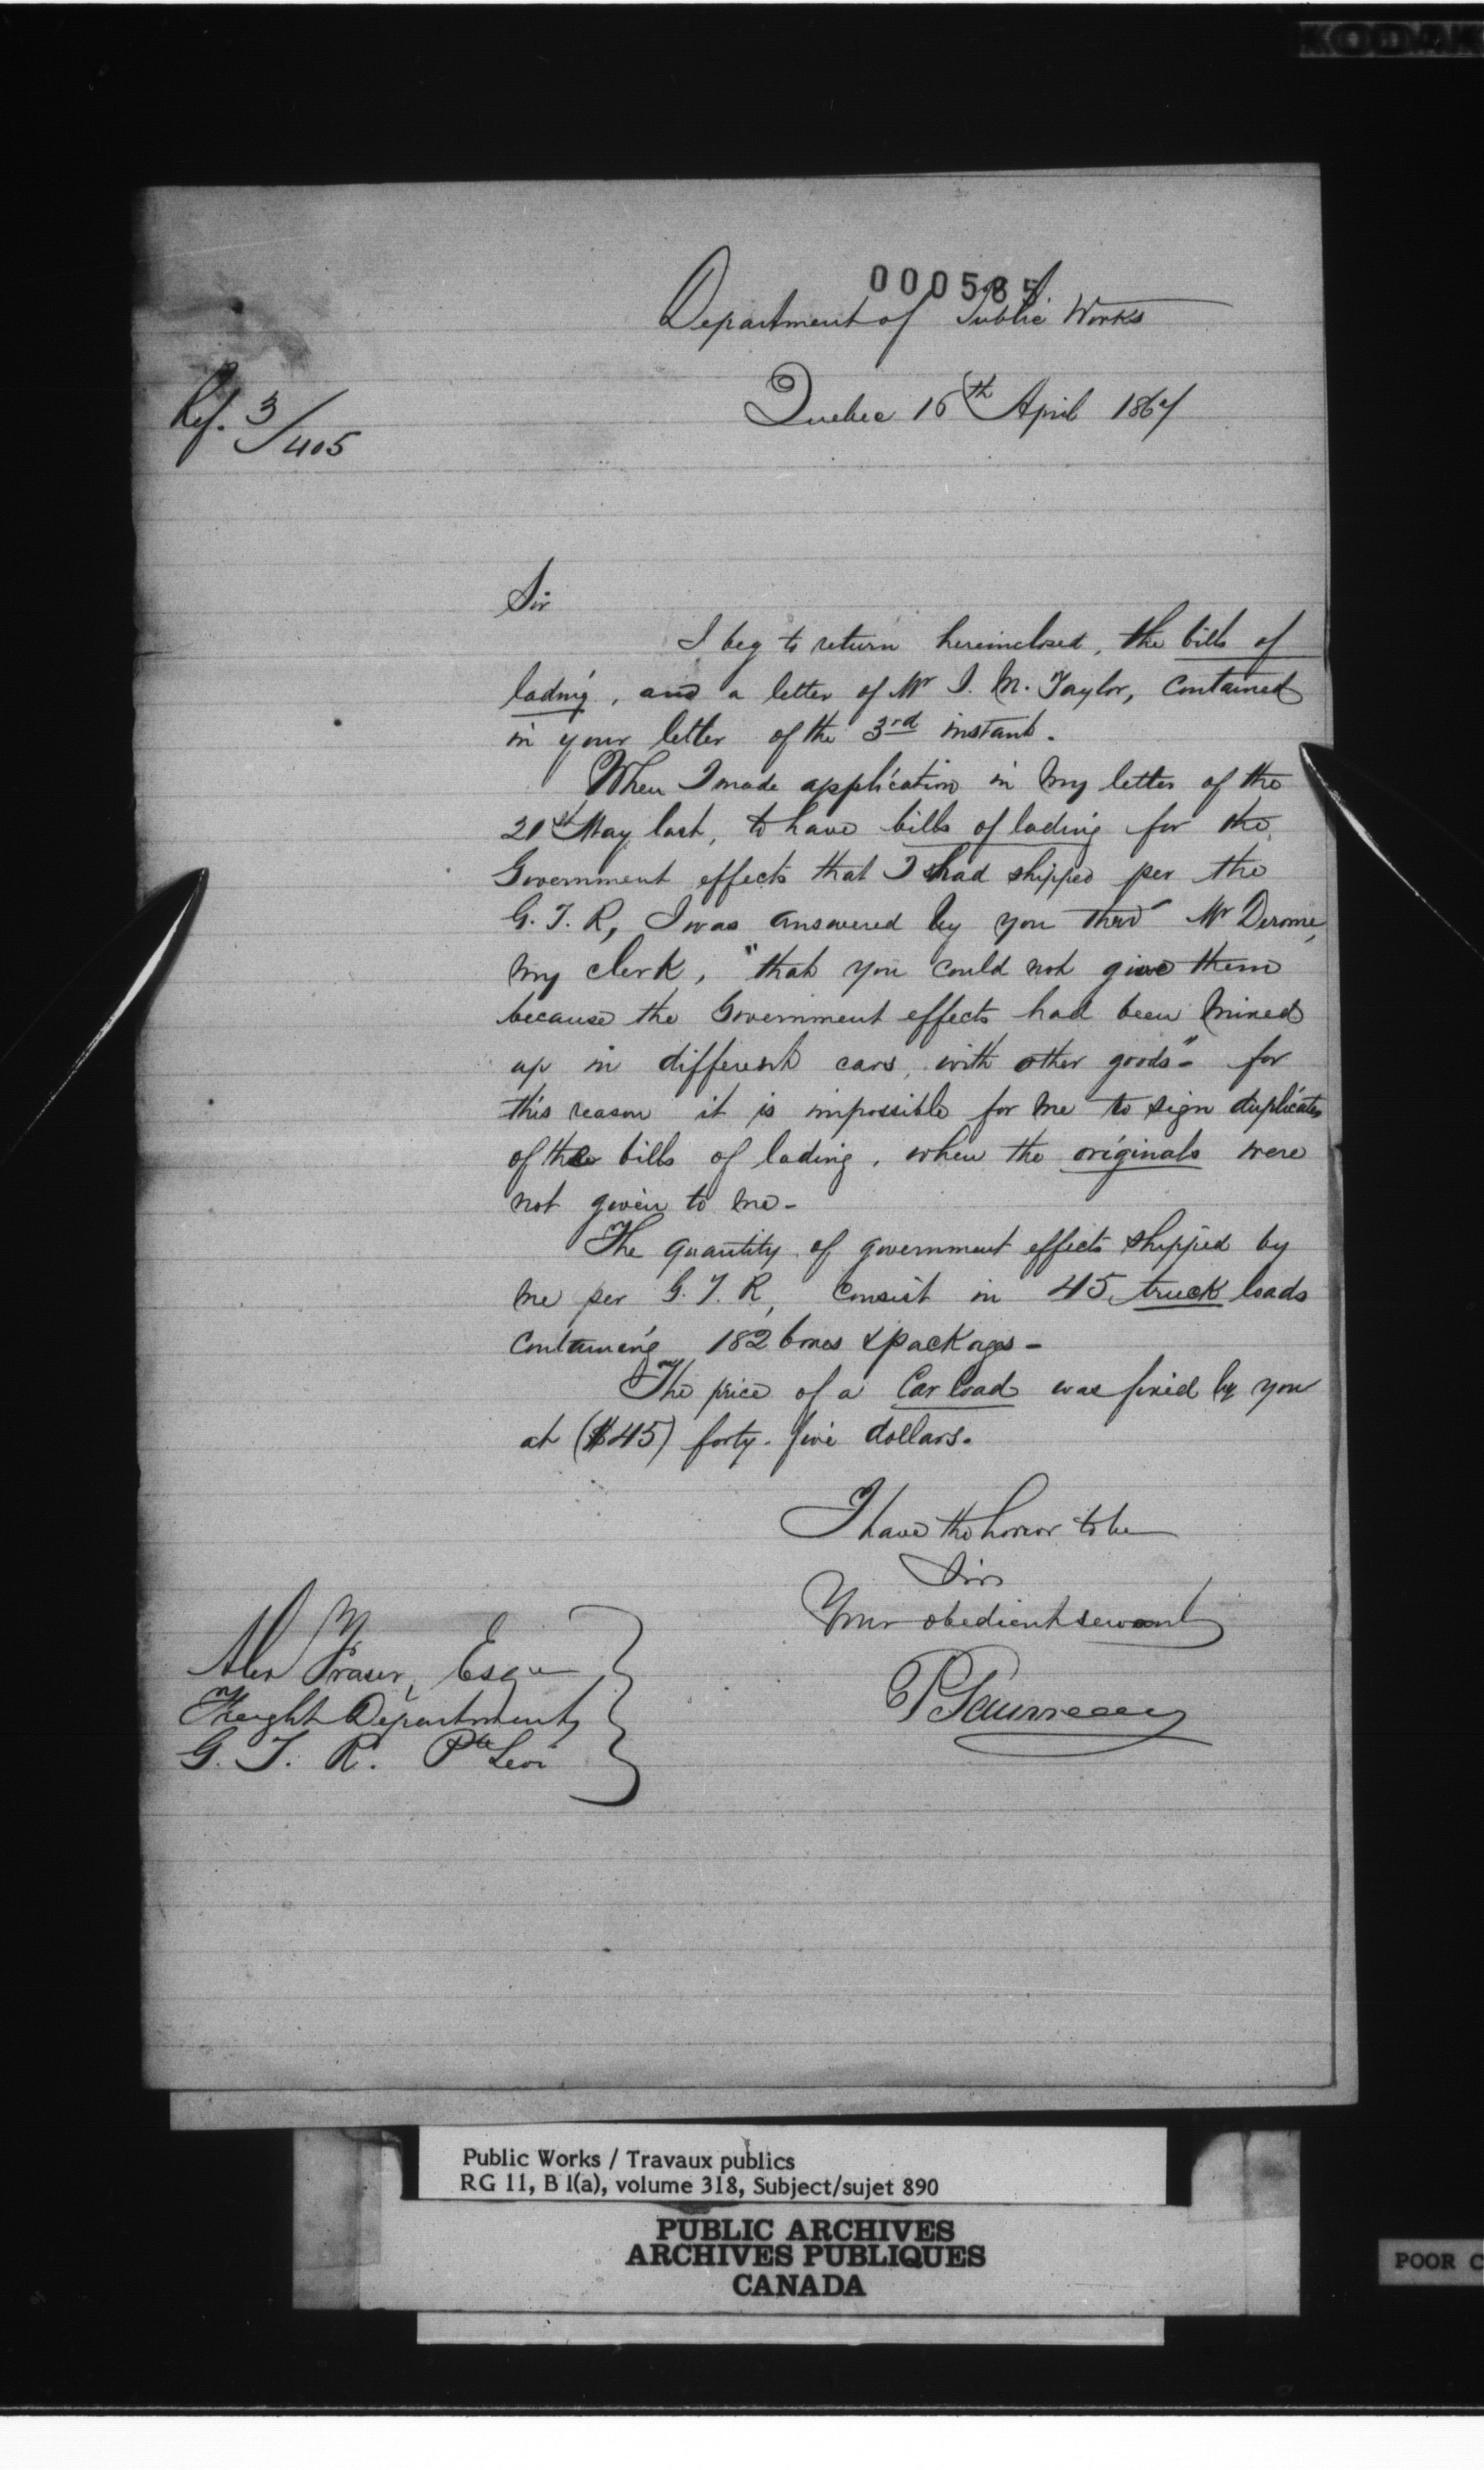 KODAK
000585
Department of Public Works
Quebec 16th April 1867
Ref. 3/405
Sir
I beg to return hereinclosed, the bills of
lading, and a letter of Mr J. M. Taylor, contained
in your letter of the 3rd instant.
When I made application in my letter of the
21st May last, to have bills of lading for the
Government effects that I had shipped per the
G. T. R, I was answered by you thro' Mr Derome,
my clerk, "that you could not give them
because the Government effects had been mixed
up in different cars, with other goods"- for
this reason it is impossible for me to sign duplicates
of the bills of lading, when the originals were
not given to me-
The quantity of government effects shipped by
me per G. T. R, consist in 45 truck loads
containing 182 boxes & packages-
The price of a Car load was fixed by you
at ($45) forty-five dollars.
I have the honor to be
Sir
Your obedient servant
P
Alex Fraser, Esqre
Freight Department,
G. T. R. Pte Levi
Public Works / Travaux publics
RG 11, B 1(a), volume 318, Subject/sujet 890
PUBLIC ARCHIVES
ARCHIVES PUBLIQUES
CANADA
POOR C